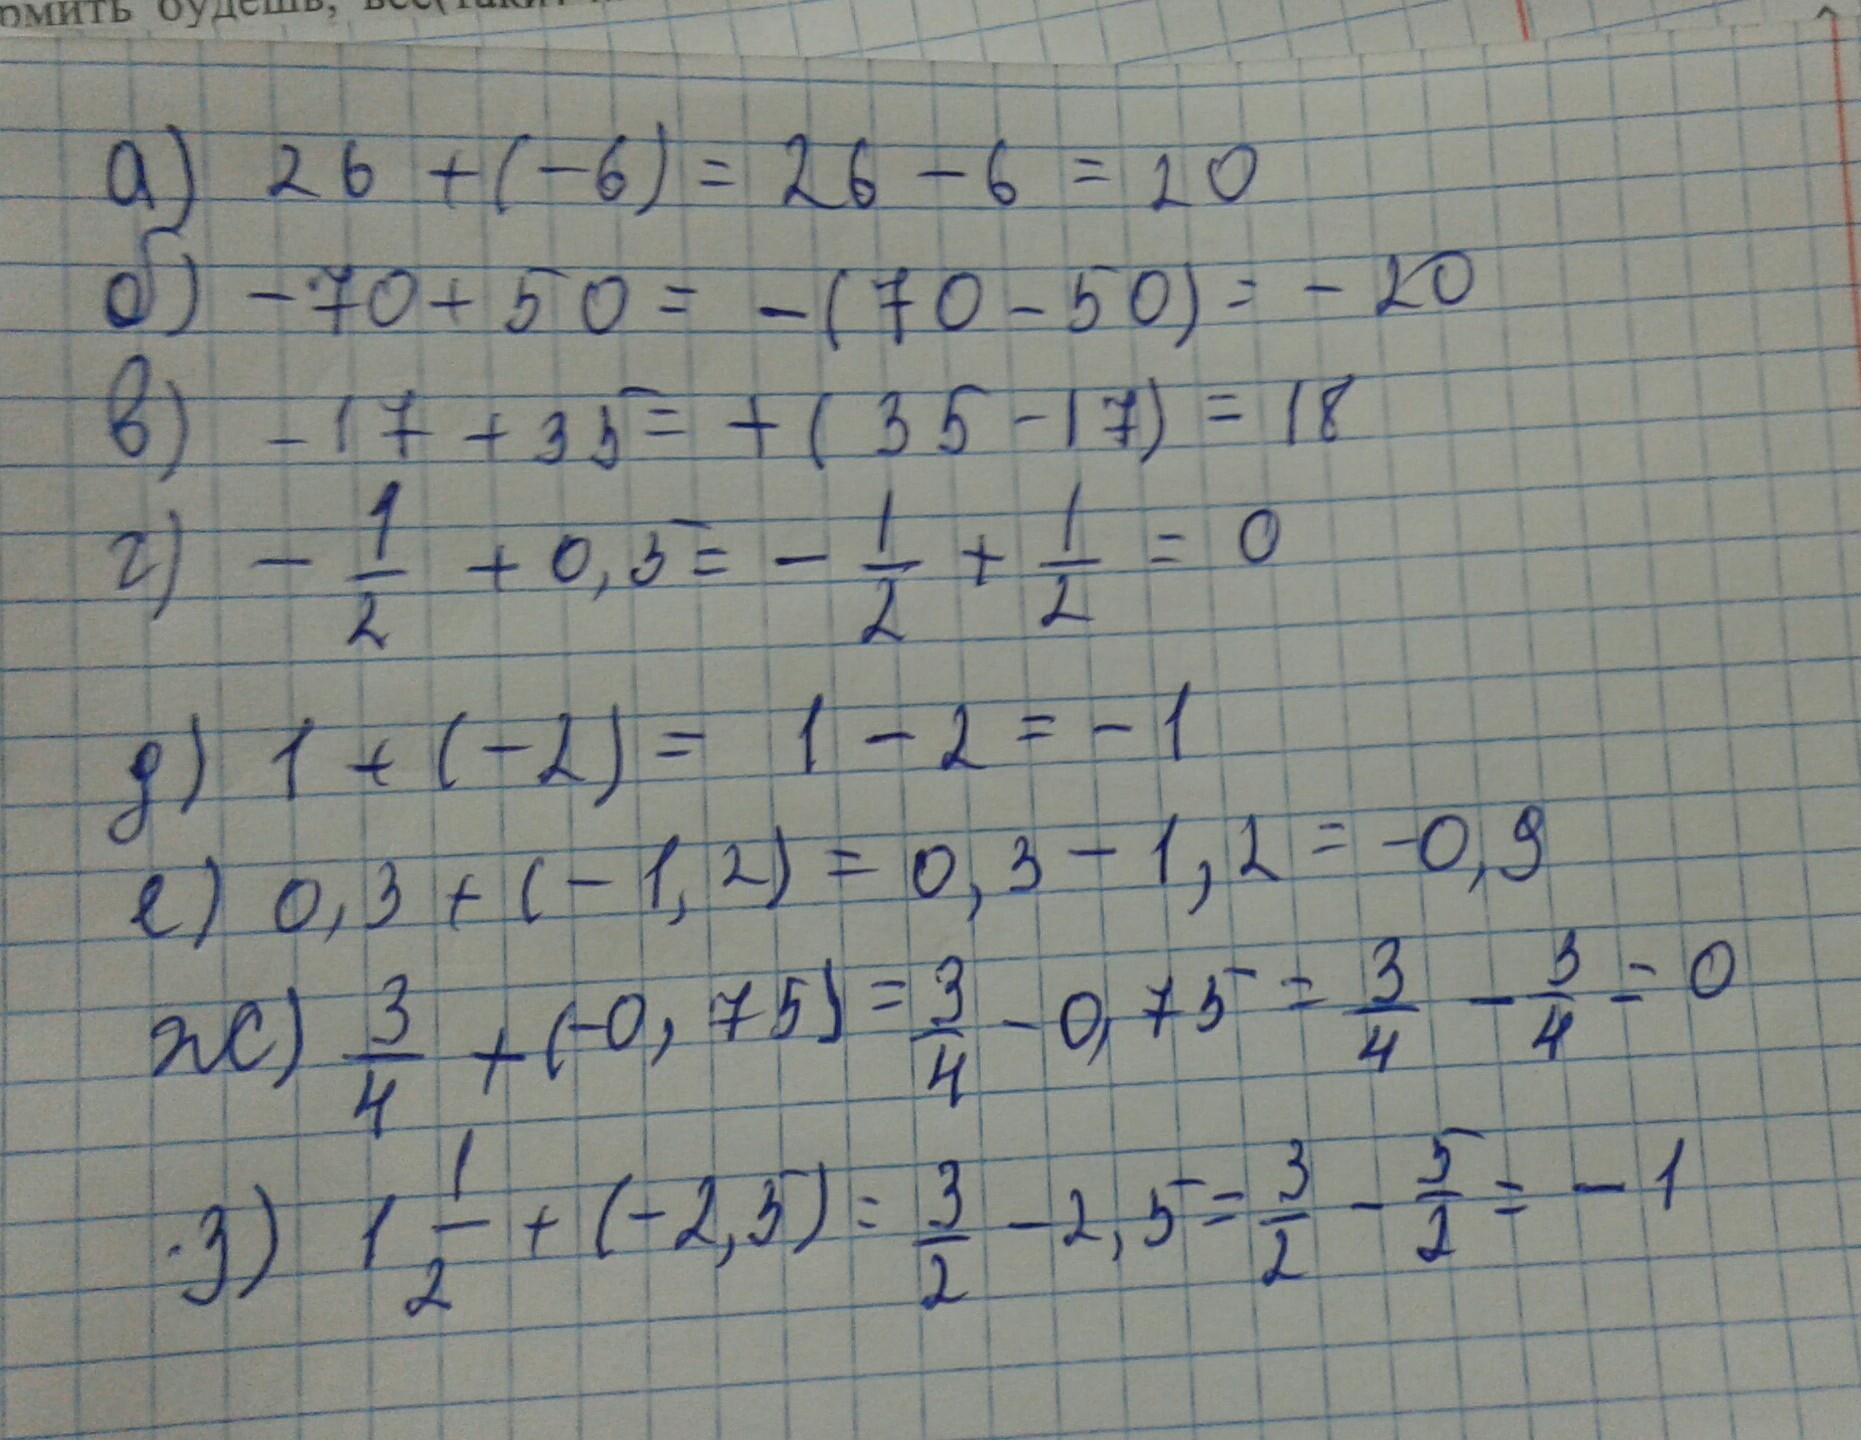 будешь,
а) 26 + (-6) = 26 - 6 = 20
б) -70 + 50 = -(70 - 50) = -20
в) -17 + 35 = +(35 - 17) = 18
г) -1/2 + 0,5 = -1/2 + 1/2 = 0
д) 1 + (-2) = 1 - 2 = -1
е) 0,3 + (-1,2) = 0,3 - 1,2 = -0,9
ж) 3/4 + (-0,75) = 3/4 - 0,75 = 3/4 - 3/4 = 0
з) 1 1/2 + (-2,5) = 3/2 - 2,5 = 3/2 - 5/2 = -1